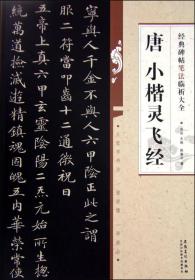 经典碑帖笔法临析大全
唐 小楷灵飞经
寧與人千金不與人六甲陰
服二符當叩齒十二通微祝曰
五帝上真六甲玄靈陰陽二炁元始所生總
統萬道撿滅遊精鎮魂固魄五內華榮常使